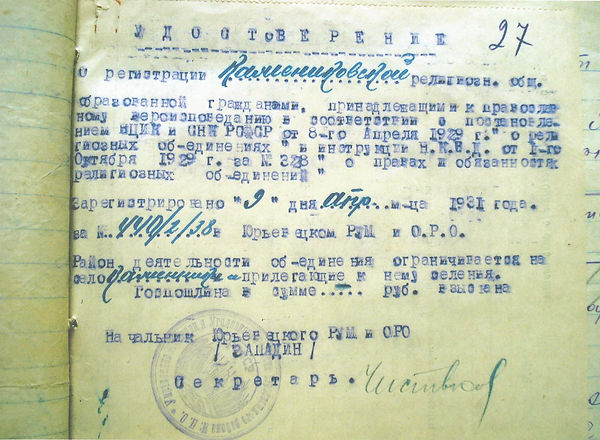 27
УДОСТОВЕРЕНИЕ
о регистрации Каменниковской религиозн. общ.
образованной гражданами, принадлежащими к православ-
ному вероисповеданию в соответствии с постановле-
нием ВЦИК и СНК РСФСР от 8-го Апреля 1929 г." о рели
гиозных об-единениях " и инструкции Н.К.В.Д. от 1-го
Октября 1929 г. за № 328 " о правах и обязанностях
религиозных об-единений "
Зарегистрировано " 9 " дня апр... м-ца 1931 года.
за №. 440/2/38 в Юрьевецком РУМ и О.Р.О.
Район деятельности об-единения ограничивается на
село Каменники и прилегающие к нему селения.
Госпошлина в сумме..... руб. взыскана
Начальник Юрьевецкого РУМ и ОРО
/ ЗАПАДИН /
Секретарь.